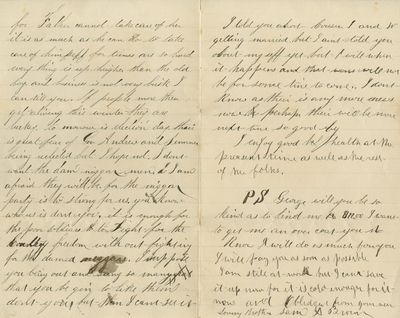 for Father cannot take care of him
it is as much as he can Do to take
care of himself for times are so hard
every thing is up higher than the old
boy and business is not very brisk I
can tell you If people more than
get a living this winter they are
lucky. To morrow is election day their
is great fear of Gov Andrew and Sumner
being reelected but I hope not. I dont
want the dam nigger men in I am
afraid they will be for the nigger
party is to strong for us you know
who us is dont you, it is enough for
the poor soldiers to fight for the
freedom with out fighting
for the darned niggers. I suppose
you being out among so many
that you begin to like them
dont you, but I cant see it
I told you about Cousin I and S
getting married but I ant told you
about myself yet but I will when
it happens and that will not
be for some time to come. I dont
know as their is any more news
now perhaps their will be more
next time so good by
I enjoy good health at the
present time as well as the rest
of the folks.
PS George will you be so
kind as to lend me I want
to get me an over coat you it
know I will do as much for you
I will pay you as soon as possible
I am still at work but I cant save
it up now for it is cold enough for it
now and oblidge from your ever
loveing Brother Sam